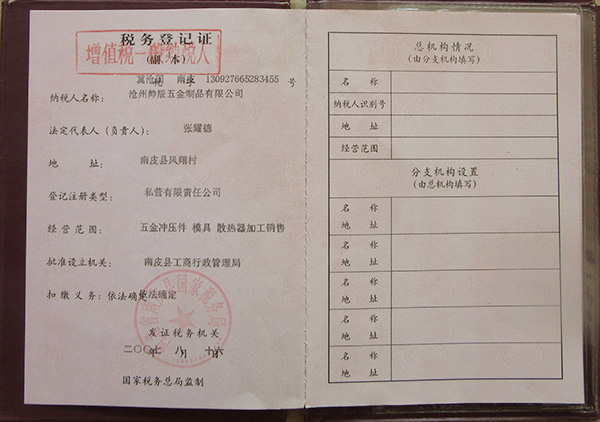 税务登记证
(副本)
增值税一般纳税人
冀沧国税 南皮 字 130927665283455 号
纳税人名称: 沧州帅辰五金制品有限公司
法定代表人(负责人): 张耀德
地 址: 南皮县凤翔村
登记注册类型: 私营有限责任公司
经营范围: 五金冲压件 模具 散热器加工销售
批准设立机关: 南皮县工商行政管理局
扣缴义务:依法确定 依法确定
发证税务机关
二〇〇七年 八月 十六日
国家税务总局监制
总机构情况
(由分支机构填写)
名 称
纳税人识别号
地 址
经营范围
分支机构设置
(由总机构填写)
名 称
地 址
名 称
地 址
名 称
地 址
名 称
地 址
名 称
地 址